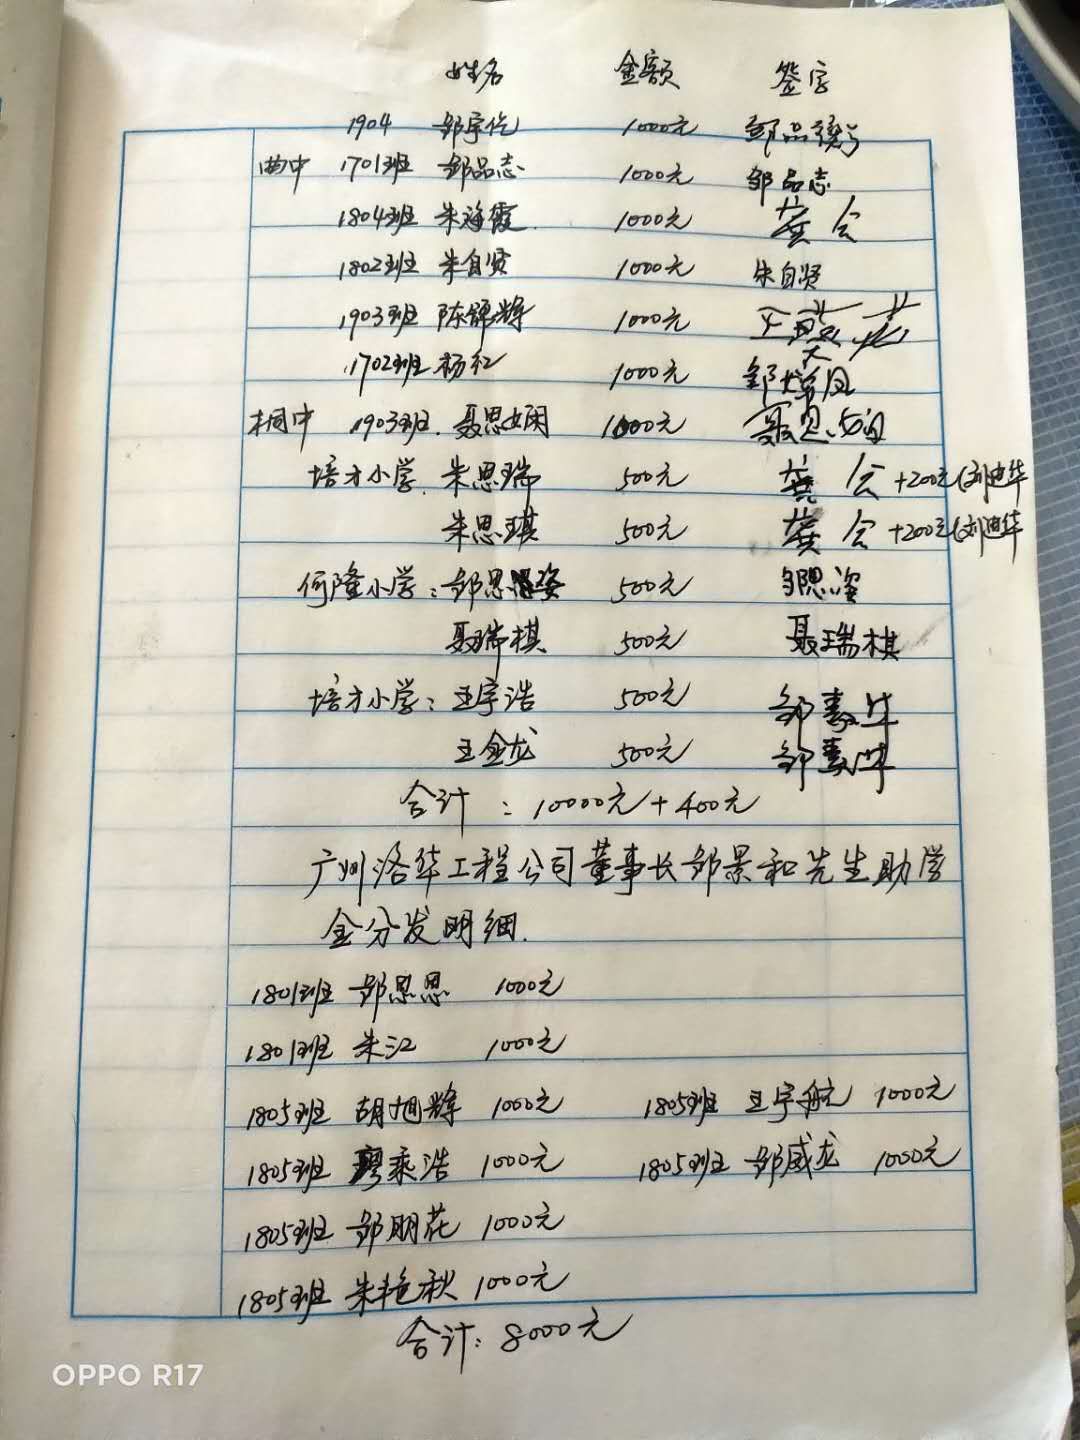 姓名 金额 签字
1904 邹宇 1000元 邹品
曲中 1701班 邹品志 1000元 邹品志
1804班 朱海霞 1000元 龚会
1802班 朱自贤 1000元 朱自贤
1903班 陈锦辉 1000元
1702班 杨红 1000元 邹 凤
桐中 1903班. 聂思娴 1000元 聂思娴
培才小学. 朱思瑞 500元 龚会 +200元(刘迪华
朱思琪 500元 龚会 +200元(刘迪华
何隆小学: 邹思姿 500元 邹思姿
聂瑞棋 500元 聂瑞棋
培才小学: 王宇浩 500元 邹素华
王金龙 500元 邹素华
合计 : 10000元+400元
广州洛华工程公司董事长邹景和先生助学
金分发明细.
1801班 邹思思 1000元
1801班 朱江 1000元
1805班 胡旭辉 1000元 1805班 王宇航 1000元
1805班 廖乘浩 1000元 1805班 邹威龙 1000元
1805班 邹明花 1000元
1805班 朱艳秋 1000元
合计: 8000元
OPPO R17